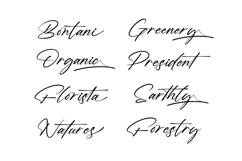 Bontani Greenery
Organic President
Florista Earthty
Natures Forestry